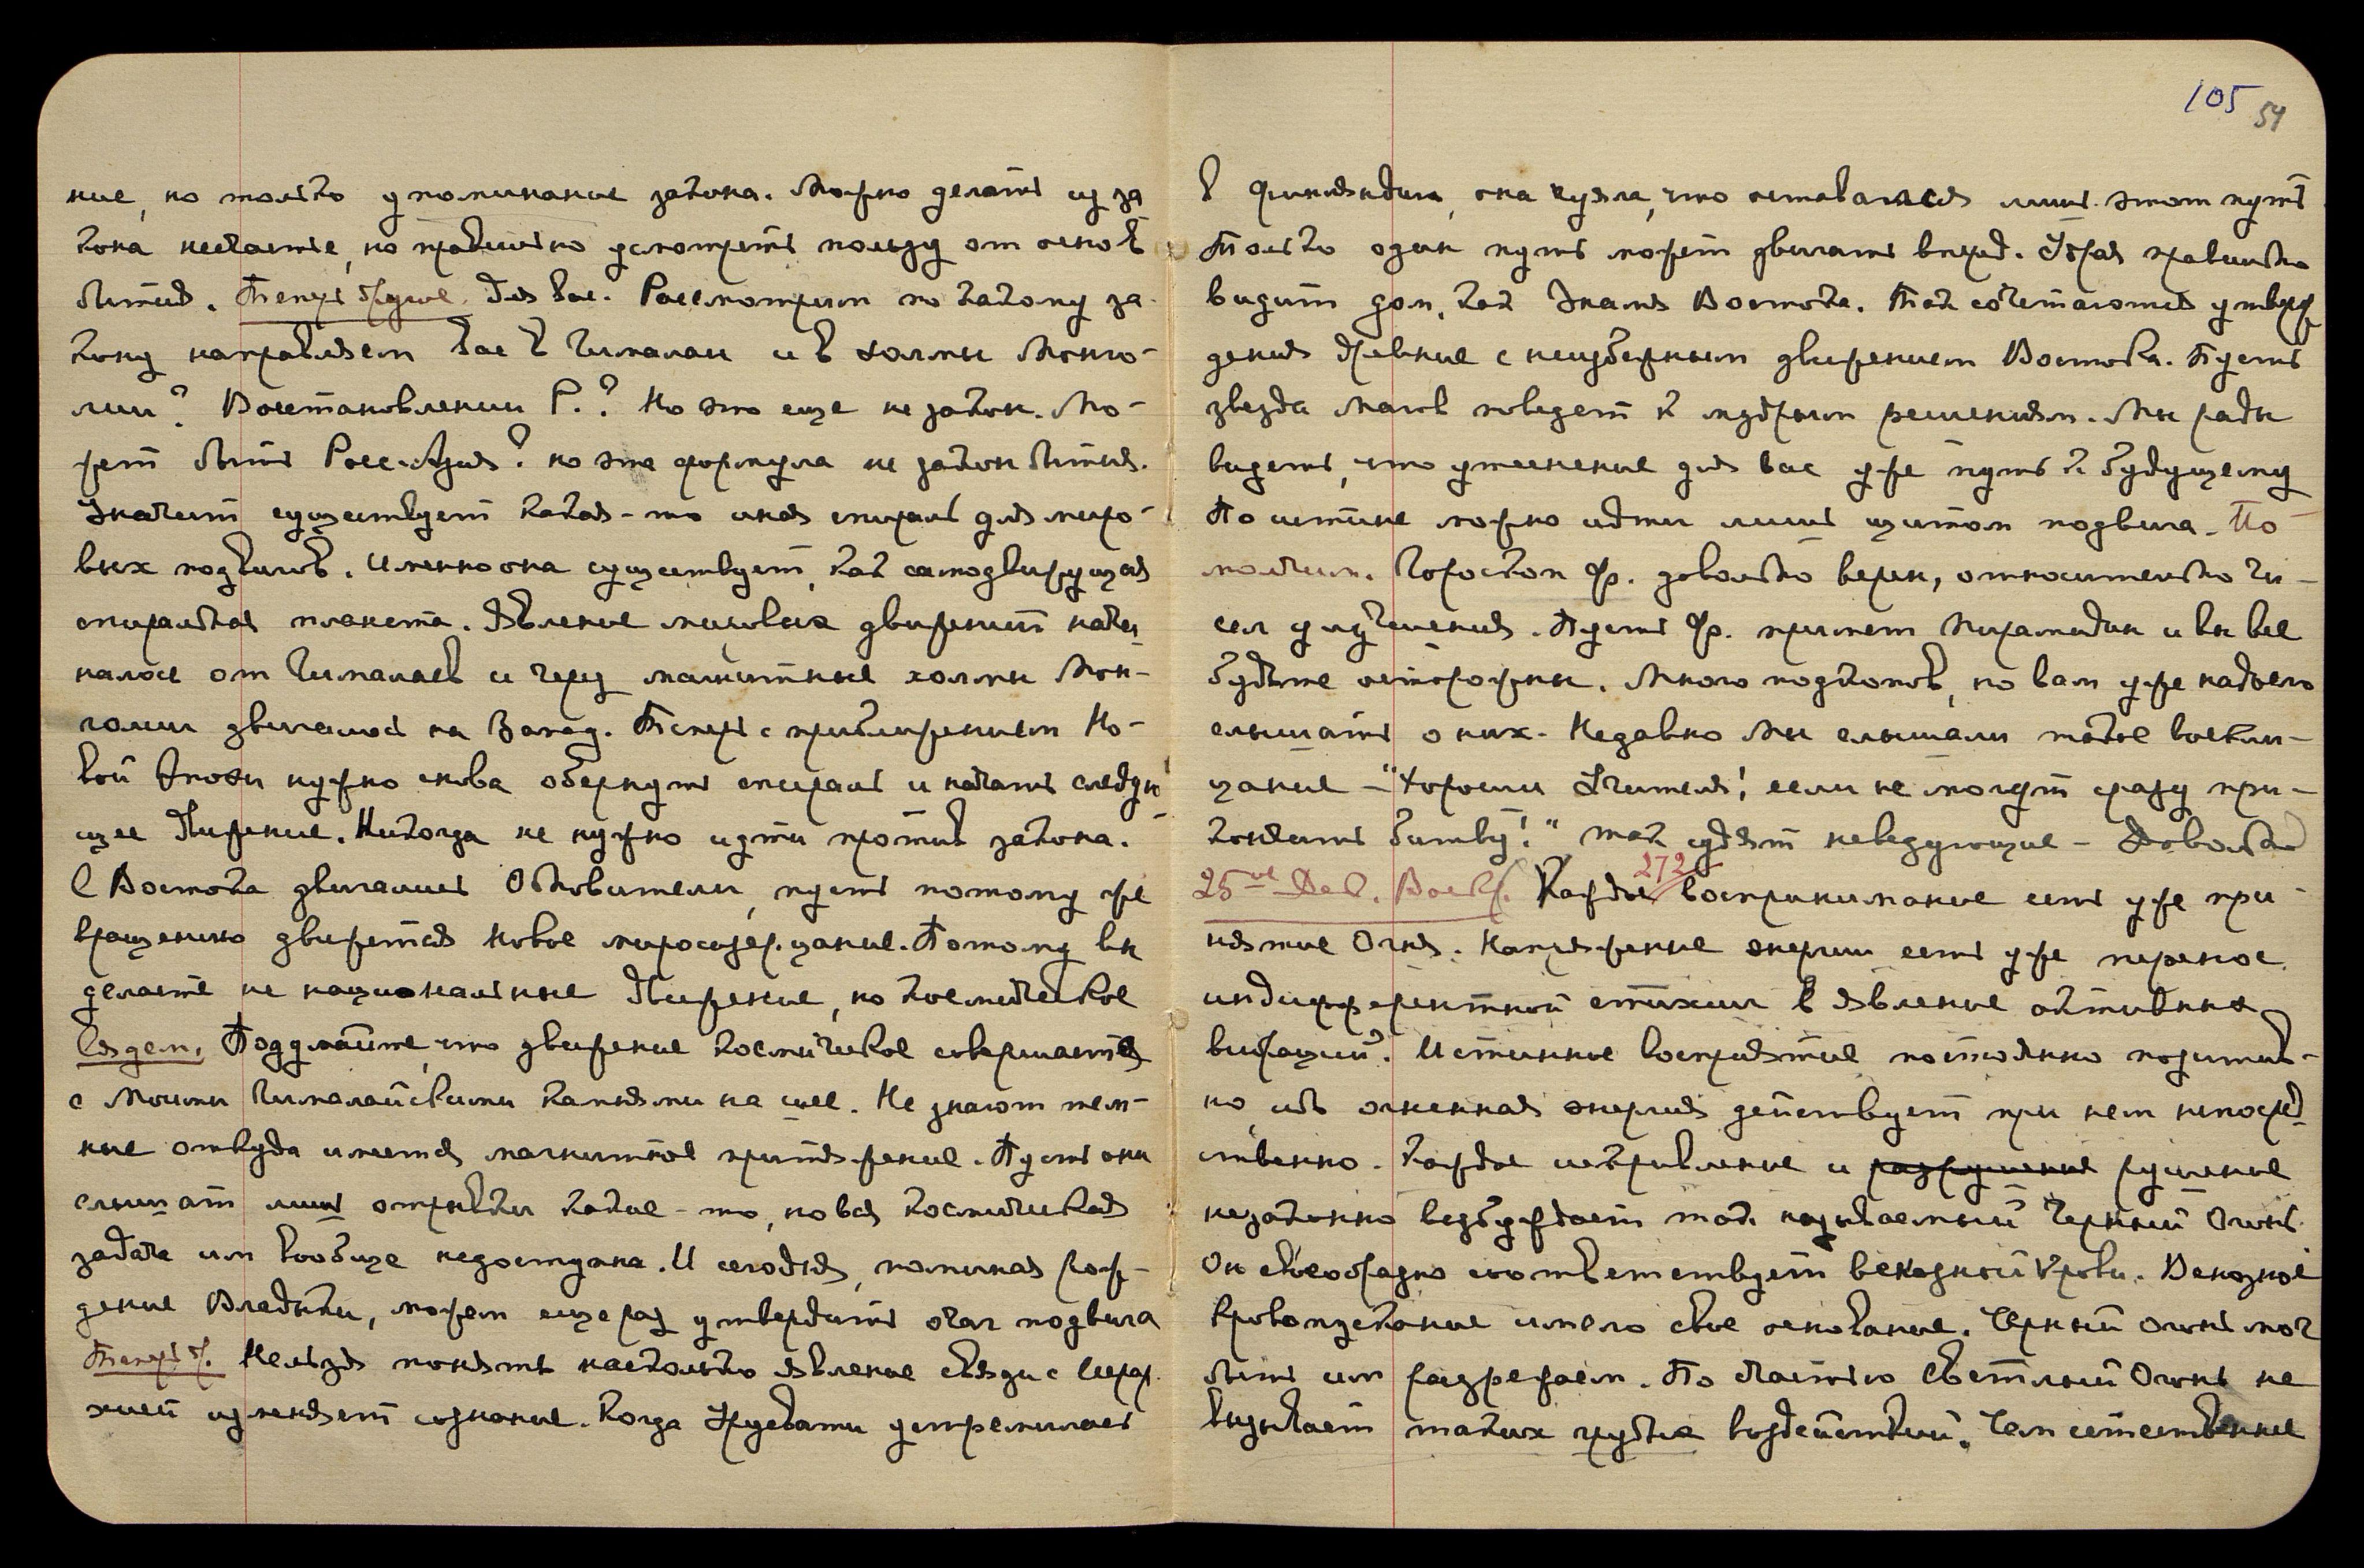 ние, но только упоминание закона. Можно делать из за
кона несчастье, но правильно усмотреть пользу от основ
бытия. Теперь другое. Для вас. Рассмотрим по какому за-
кону направляем вас в Гималаи и в холмы Монго-
лии? Восстановлении Р.? Но это еще не закон. Мо-
жет быть Росс. Азия? но эта формула не закон бытия.
Значит существует какая-то иная спираль для миро-
вых подвигов. Именно она существует, как самодвижущая
спиральная планета. Явление мировых движений начи
налось от Гималаев и через магнитные холмы Мон-
голии двигалось на Запад. Теперь с приближением Но-
вой Эпохи нужно снова обернуть спираль и начать следую
щее движение. Никогда не нужно идти против закона.
С Востока двигались Обновители, пусть потому же
вращению движется Новое миросозерцание. Потому вы
делаете не национальные движение, но космическое
создам. Подумайте, что движение космическое совершается
с Моими Гималайскими камнями на шее. Не знают тем-
ные откуда имеется магнитное притяжение. Пусть они
слышат лишь отрывки какие-то, но вся космическая
задача им вообще недоступна. И сегодня, поминая рож-
дение Владыки, можем еще раз утвердить очаг подвига
Теперь д. Нельзя понять насколько явление связи с Иерар
хией изменяет сознание. Когда Урусвати устремилась
105
54
в Финляндии, она чуяла, что оставался лишь этот путь
Только один путь может двигать вперед. Удрая правильно
видит дом, как Знамя Востока. Так сочетаются утверж
дения древние с неизбежным движением Востока. Пусть
звезда Магов поведет к мудрым решениям. Мы рады
видеть, что утеснение для вас уже путь к будущему
Поистине можно идти лишь щитом подвига. По
молчим. Гороскоп Ф. довольно верен, относительно чи-
сел улучшения. Пусть Ф. примет пирамидон и вы все
будьте осторожны. Много подкопов, но вам уже надоело
слышать о них. Недавно Мы слышали такое воскли-
цание – "Хороши Учителя! если не могут сразу при-
кончить битву!" так судят неведующие – Довольно
25ое Дек. Воскр. 272 Каждое воспринимание есть уже при-
нятие Огня. Напряжение энергии есть уже перенос
индифферентной стихии в явление активных
вибраций. Истинное восприятие постоянно позитив-
но, ибо огненная энергия действует при нем непосред
ственно. Каждое искривление и разрушение рушение
незаконно возбуждает так называемый Черный Огонь.
Он своеобразно соответствует венозной крови. Венозное
кровопускание имело свое основание. Черный огонь мог
быть им разрежаем. По счастью Светлый Огонь не
вызывает таких грубых воздействий. Чем естественнее